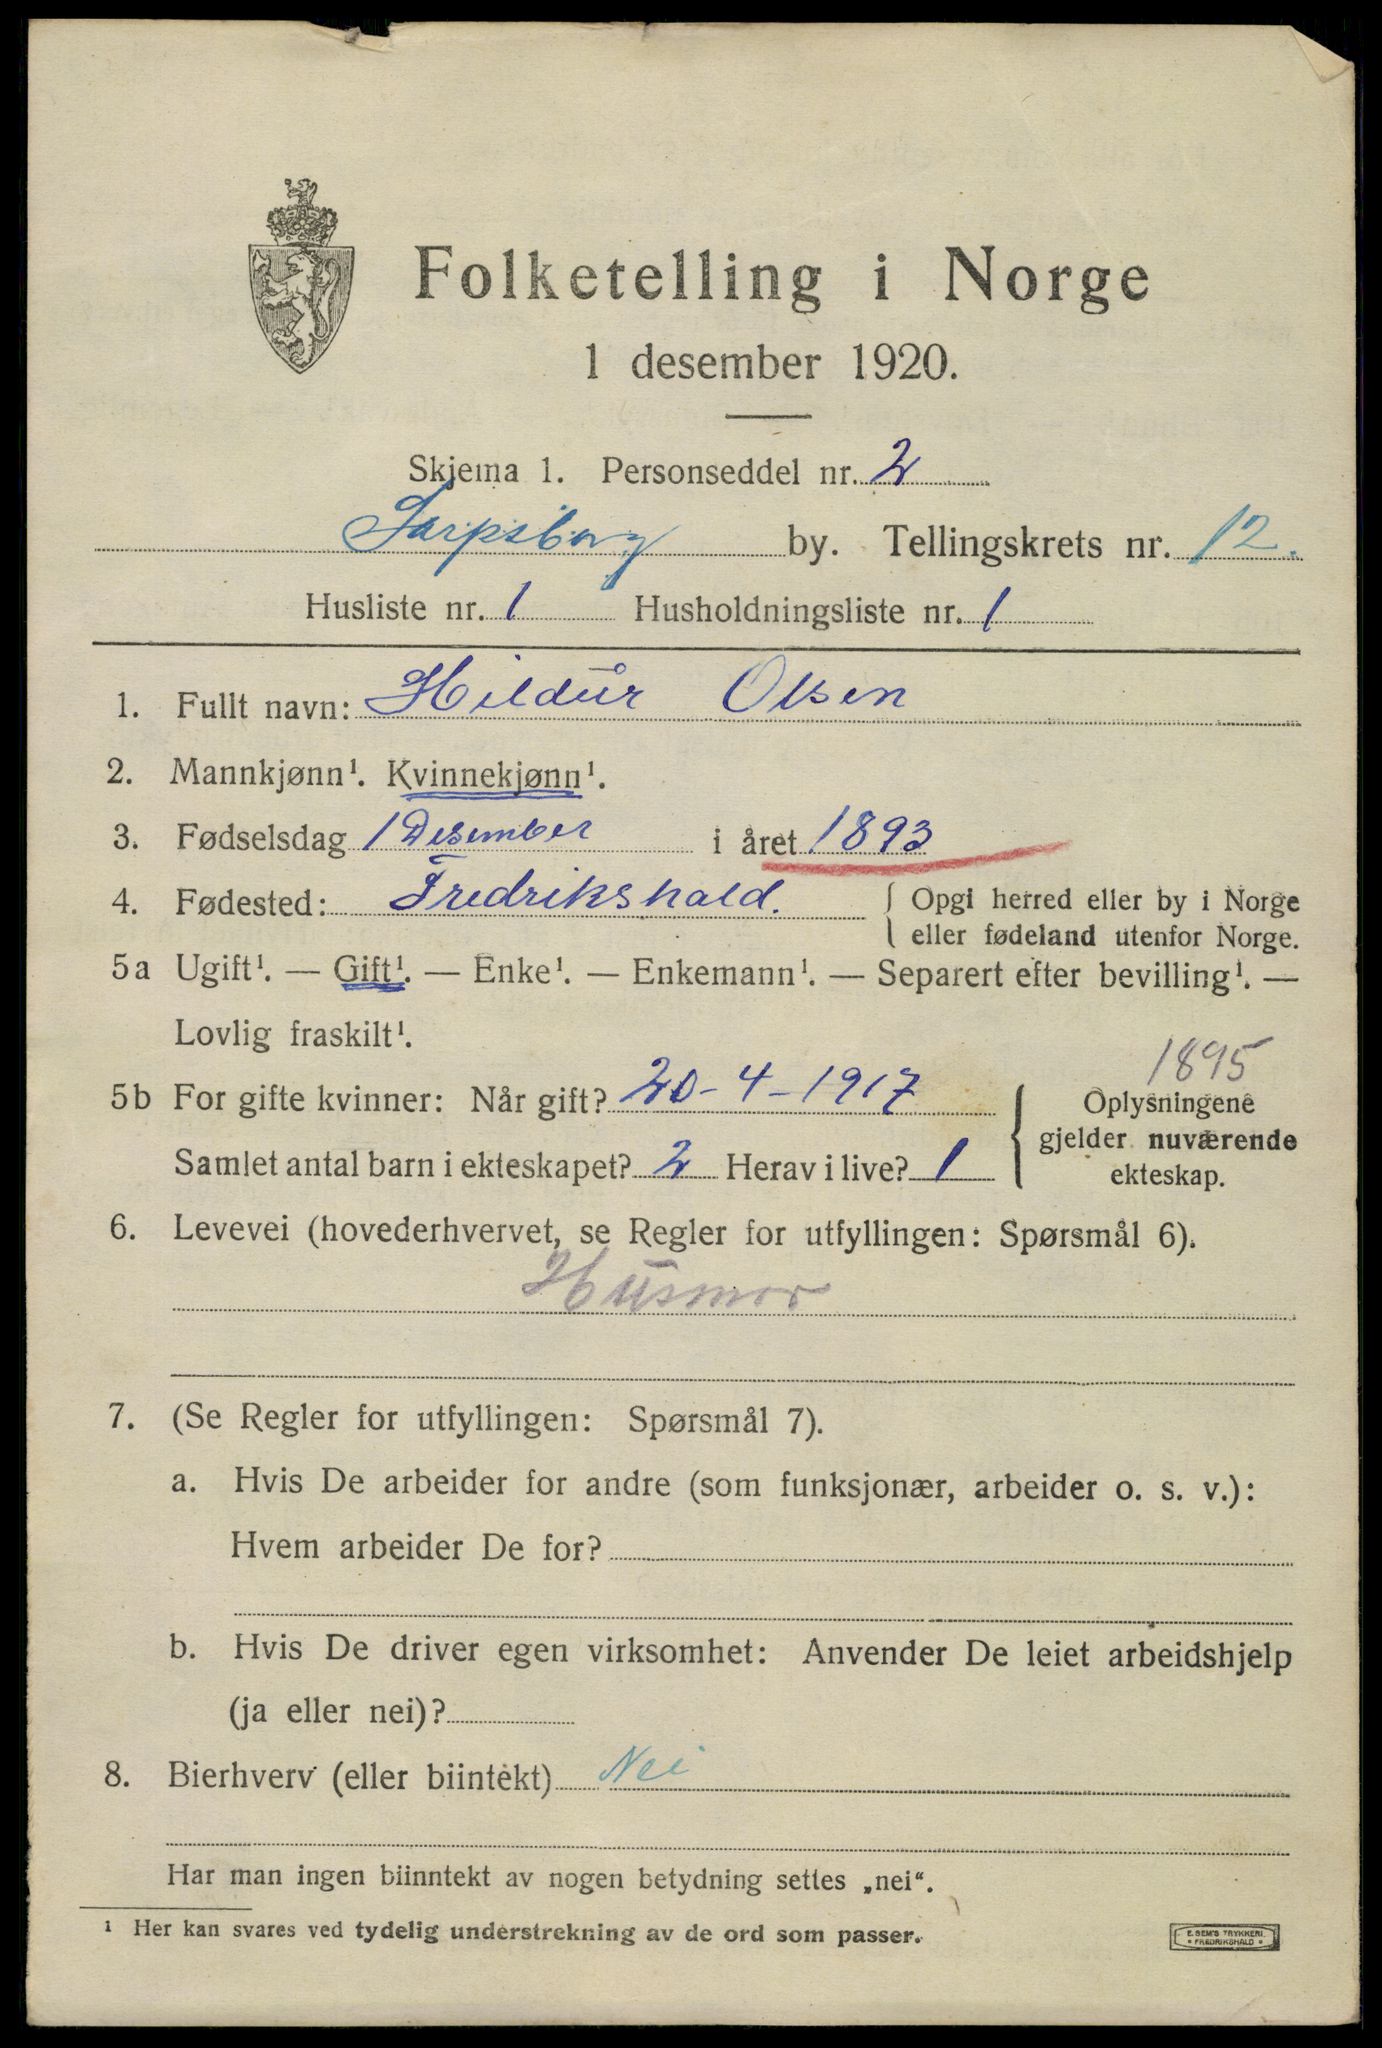 Folketelling i Norge
1 desember 1920.
Skjema 1. Personseddel nr. 2
Sarpsborg by. Tellingskrets nr. 12.
Husliste nr. 1 Husholdningsliste nr. 1
1. Fullt navn: Hildur Olsen
2. Mannkjønn¹. Kvinnekjønn¹.
3. Fødselsdag 1 Desember i året 1893
4. Fødested: Fredrikshald. { Opgi herred eller by i Norge
eller fødeland utenfor Norge.
5a Ugift¹. — Gift¹. — Enke¹. — Enkemann¹. — Separert efter bevilling¹. —
Lovlig fraskilt¹.
1895
5b For gifte kvinner: Når gift? 20-4-1917 { Oplysningene
gjelder nuværende
Samlet antal barn i ekteskapet? 2 Herav i live? 1 ekteskap.
6. Levevei (hovederhvervet, se Regler for utfyllingen: Spørsmål 6).
Husmor
7. (Se Regler for utfyllingen: Spørsmål 7).
a. Hvis De arbeider for andre (som funksjonær, arbeider o. s. v.):
Hvem arbeider De for?
b. Hvis De driver egen virksomhet: Anvender De leiet arbeidshjelp
(ja eller nei)?
8. Bierhverv (eller biintekt) Nei
Har man ingen biinntekt av nogen betydning settes „nei“.
¹ Her kan svares ved tydelig understrekning av de ord som passer.
E. SEM'S TRYKKERI
FREDRIKSHALD